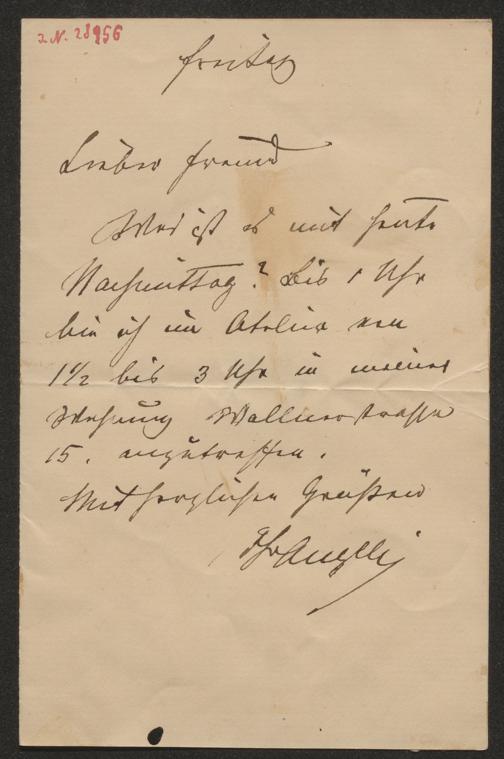 J.N. 28956
Freitag
Lieber Freund
Was ist es mit heute
Nachmittag? Bis 1 Uhr
bin ich im Atelier von
1 1/2 bis 3 Uhr in meiner
Wohnung Wallnerstrasse
15. anzutreffen.
Mit herzlichen Grüßen
Ihr Angeli